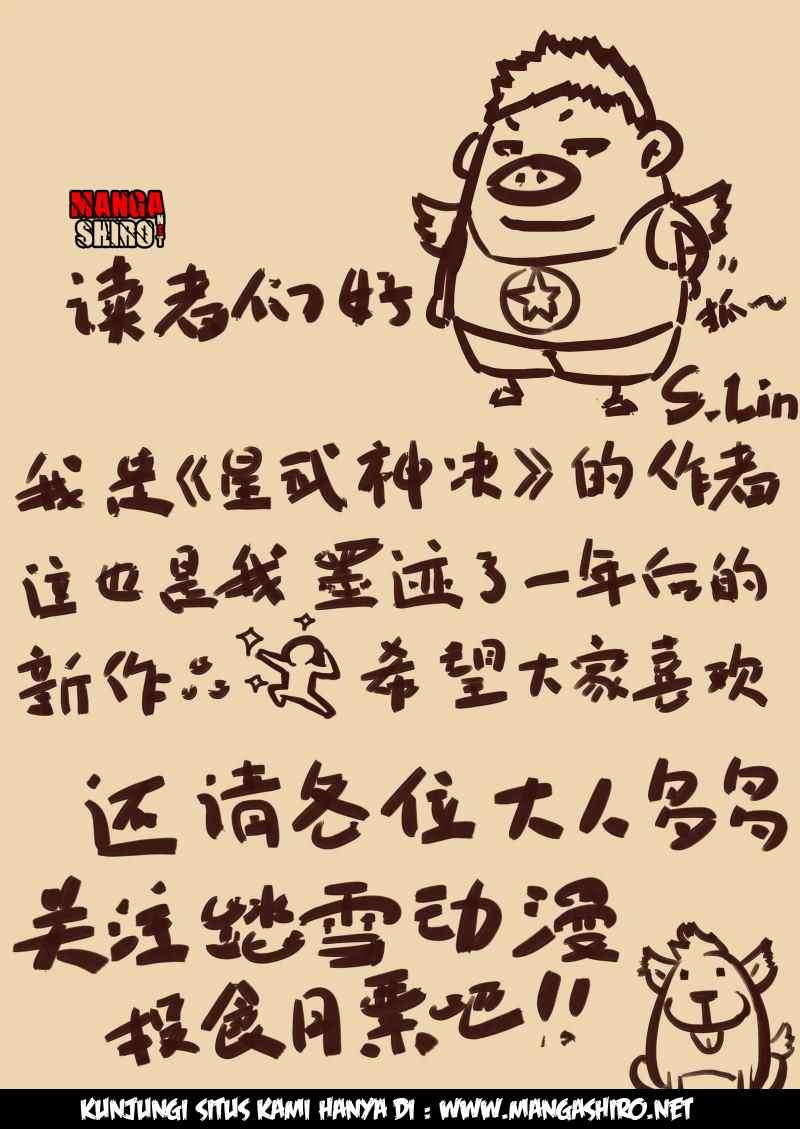 MANGA
SHIRO.NET
读者们好
狐~
S.Lin
我是《星武神决》的作者
这也是我墨迹了一年后的
新作。。。希望大家喜欢
还请各位大人多多
关注踏雪动漫
投食月票吧!!
KUNJUNGI SITUS KAMI HANYA DI : WWW.MANGASHIRO.NET